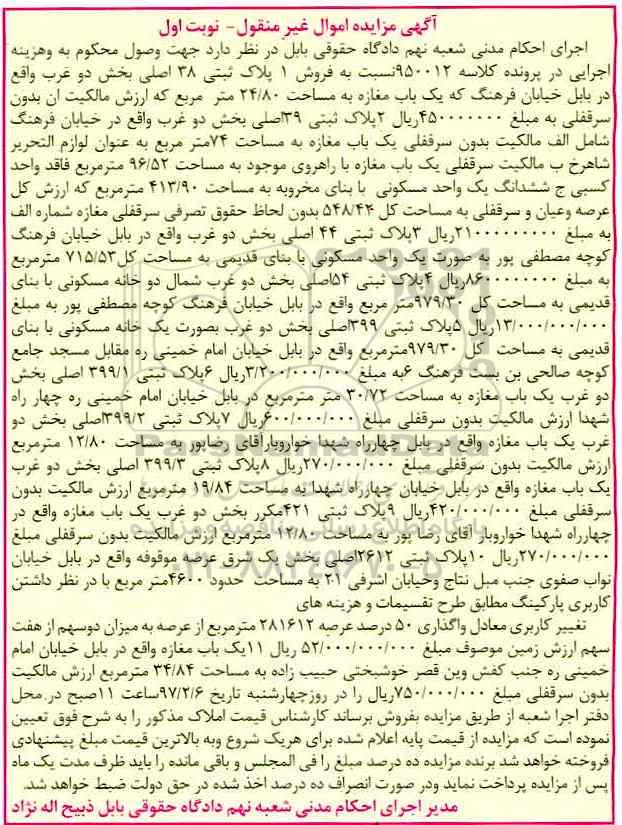 آگهی مزایده اموال غیر منقول- نوبت اول
اجرای احکام مدنی شعبه نهم دادگاه حقوقی بابل در نظر دارد جهت وصول محکوم به وهزینه
اجرایی در پرونده کلاسه ۹۵۰۰۱۲نسبت به فروش ۱ پلاک ثبتی ۳۸ اصلی بخش دو غرب واقع
در بابل خیابان فرهنگ که یک باب مغازه به مساحت ۲۴/۸۰ متر مربع که ارزش مالکیت ان بدون
سرقفلی به مبلغ ۴۵۰۰۰۰۰۰۰۰ریال ۲پلاک ثبتی ۳۹اصلی بخش دو غرب واقع در خیابان فرهنگ
شامل الف مالکیت بدون سرقفلی یک باب مغازه به مساحت ۷۴متر مربع به عنوان لوازم التحریر
شاهرخ ب مالکیت سرقفلی یک باب مغازه با راهروی موجود به مساحت ۹۶/۵۲ مترمربع فاقد واحد
کسبی ج ششدانگ یک واحد مسکونی با بنای مخروبه به مساحت ۴۱۳/۹۰ مترمربع که ارزش کل
عرصه وعیان و سرقفلی به مساحت کل ۵۴۸/۴۲ بدون لحاظ حقوق تصرفی سرقفلی مغازه شماره الف
به مبلغ ۲۱۰۰۰۰۰۰۰۰۰ریال ۳پلاک ثبتی ۴۴ اصلی بخش دو غرب واقع در بابل خیابان فرهنگ
کوچه مصطفی پور به صورت یک واحد مسکونی با بنای قدیمی به مساحت کل۷۱۵/۵۳ مترمربع
به مبلغ ۸۶۰۰۰۰۰۰۰۰ریال ۴پلاک ثبتی ۵۴اصلی بخش دو غرب شمال دو خانه مسکونی با بنای
قدیمی به مساحت کل ۹۷۹/۳۰متر مربع واقع در بابل خیابان فرهنگ کوچه مصطفی پور به مبلغ
۱۳/۰۰۰/۰۰۰/۰۰۰ریال ۵پلاک ثبتی ۳۹۹اصلی بخش دو غرب بصورت یک خانه مسکونی با بنای
قدیمی به مساحت کل ۹۷۹/۳۰مترمربع واقع در بابل خیابان امام خمینی ره مقابل مسجد جامع
کوچه صالحی بن بست فرهنگ ۶به مبلغ ۳/۲۰۰/۰۰۰/۰۰۰ریال ۶پلاک ثبتی ۳۹۹/۱ اصلی بخش
دو غرب یک باب مغازه به مساحت ۳۰/۷۲ متر مترمربع در بابل خیابان امام خمینی ره چهار راه
شهدا ارزش مالکیت بدون سرقفلی مبلغ ۶۰۰/۰۰۰/۰۰۰ریال ۷پلاک ثبتی ۳۹۹/۲اصلی بخش دو
غرب یک باب مغازه واقع در بابل چهارراه شهدا خواروبارآقای رضاپور به مساحت ۱۲/۸۰ مترمربع
ارزش مالکیت بدون سرقفلی مبلغ ۲۷۰/۰۰۰/۰۰۰ریال ۸پلاک ثبتی ۳۹۹/۳ اصلی بخش دو غرب
یک باب مغازه واقع در بابل خیابان چهارراه شهدا به مساحت ۱۹/۸۴ مترمربع ارزش مالکیت بدون
سرقفلی مبلغ ۴۲۰/۰۰۰/۰۰۰ریال ۹پلاک ثبتی ۴۲۱مکرر بخش دو غرب یک باب مغازه واقع در
چهارراه شهدا خواروبار آقای رضا پور به مساحت ۱۲/۸۰ مترمربع ارزش مالکیت بدون سرقفلی مبلغ
۲۷۰/۰۰۰/۰۰۰ریال ۱۰پلاک ثبتی ۲۶۱۲اصلی بخش یک شرق عرصه موقوفه واقع در بابل خیابان
نواب صفوی جنب مبل نتاج وخیابان اشرفی ۲۱ به مساحت حدود ۴۶۰۰متر مربع با در نظر داشتن
کاربری پارکینگ مطابق طرح تقسیمات و هزینه های
تغییر کاربری معادل واگذاری ۵۰ درصد عرصه ۲۸۱۶۱۲ مترمربع از عرصه به میزان دوسهم از هفت
سهم ارزش زمین موصوف مبلغ ۵۲/۰۰۰/۰۰۰/۰۰۰ ریال ۱۱یک باب مغازه واقع در بابل خیابان امام
خمینی ره جنب کفش وین قصر خوشبختی حبیب زاده به مساحت ۳۴/۸۴ مترمربع ارزش مالکیت
بدون سرقفلی مبلغ ۷۵۰/۰۰۰/۰۰۰ریال را در روزچهارشنبه تاریخ ۹۷/۲/۶ساعت ۱۱صبح در محل
دفتر اجرا شعبه از طریق مزایده بفروش برساند کارشناس قیمت املاک مذکور را به شرح فوق تعیین
نموده است که مزایده از قیمت پایه اعلام شده برای هریک شروع وبه بالاترین قیمت مبلغ پیشنهادی
فروخته خواهد شد برنده مزایده ده درصد مبلغ را فی المجلس و باقی مانده را باید ظرف مدت یک ماه
پس از مزایده پرداخت نماید ودر صورت انصراف ده درصد اخذ شده در حق دولت ضبط خواهد شد.
مدیر اجرای احکام مدنی شعبه نهم دادگاه حقوقی بابل ذبیح اله نژاد